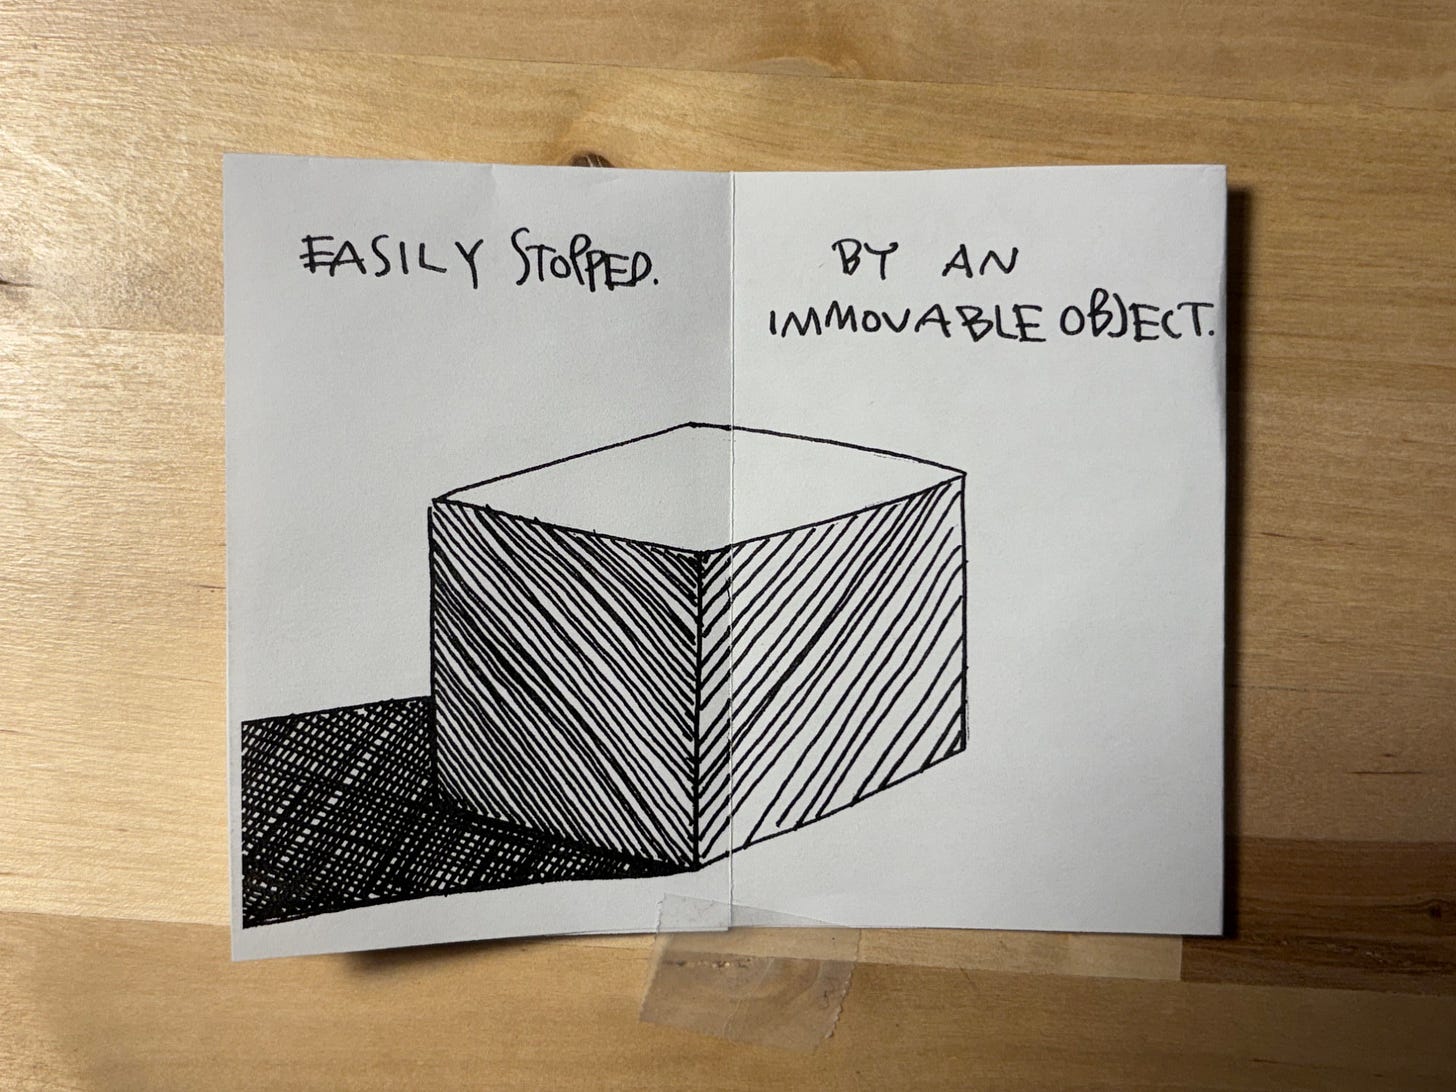 EASILY STOPPED.
BY AN
IMMOVABLE OBJECT.